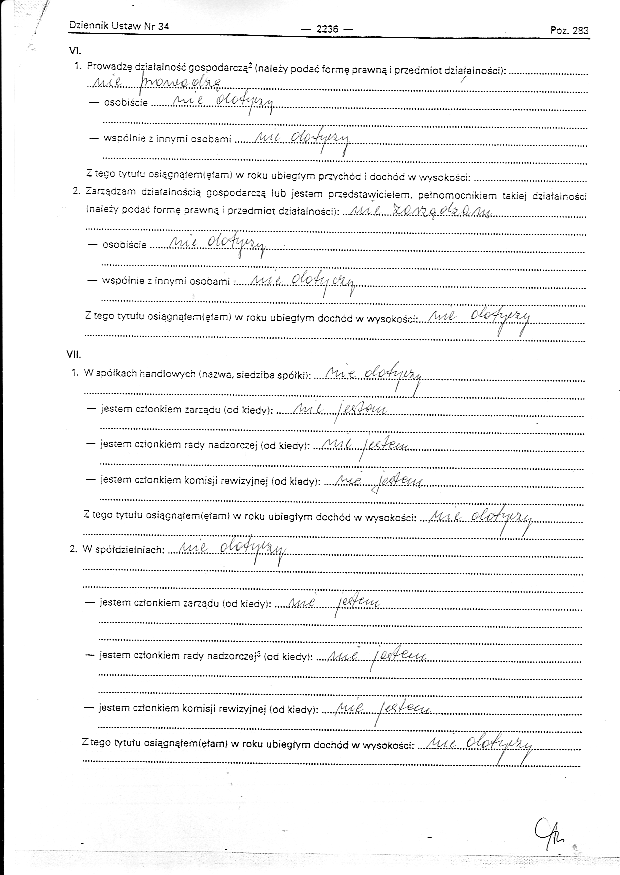 Dziennik Ustaw Nr 34 — 2236 — Poz. 283
VI.
1. Prowadzę działalność gospodarczą² (należy podać formę prawną i przedmiot działalności): 
nie prowadzę
— osobiście nie dotyczy
— wspólnie z innymi osobami nie dotyczy
Z tego tytułu osiągnąłem(ęłam) w roku ubiegłym przychód i dochód w wysokości:
2. Zarządzam działalnością gospodarczą lub jestem przedstawicielem, pełnomocnikiem takiej działalności
(należy podać formę prawną i przedmiot działalności): nie zarządzam
— osobiście nie dotyczy
— wspólnie z innymi osobami nie dotyczy
Z tego tytułu osiągnąłem(ęłam) w roku ubiegłym dochód w wysokości: nie dotyczy
VII.
1. W spółkach handlowych (nazwa, siedziba spółki): nie dotyczy
— jestem członkiem zarządu (od kiedy): nie jestem
— jestem członkiem rady nadzorczej (od kiedy): nie jestem
— jestem członkiem komisji rewizyjnej (od kiedy): nie jestem
Z tego tytułu osiągnąłem(ęłam) w roku ubiegłym dochód w wysokości: nie dotyczy
2. W spółdzielniach: nie dotyczy
— jestem członkiem zarządu (od kiedy): nie jestem
— jestem członkiem rady nadzorczej³ (od kiedy): nie jestem
— jestem członkiem komisji rewizyjnej (od kiedy): nie jestem
Z tego tytułu osiągnąłem(ęłam) w roku ubiegłym dochód w wysokości: nie dotyczy